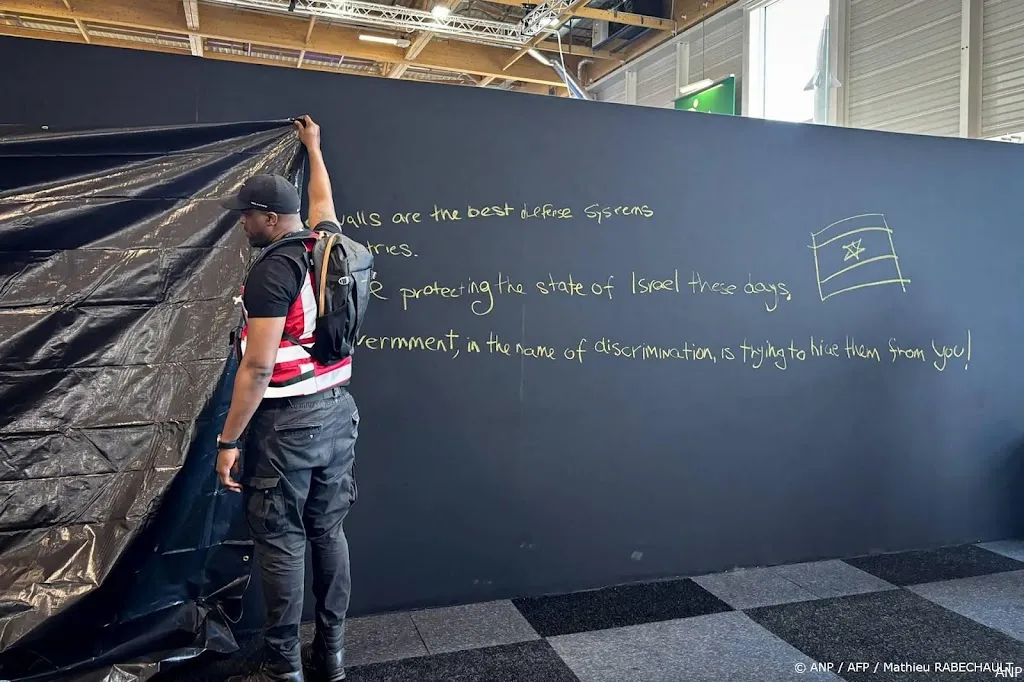 walls are the best defense Systems
tries.
protecting the state of Israel these days,
vernment, in the name of discrimination, is trying to hide them from you!
© ANP / AFP / Mathieu RABECHAULT
ANP